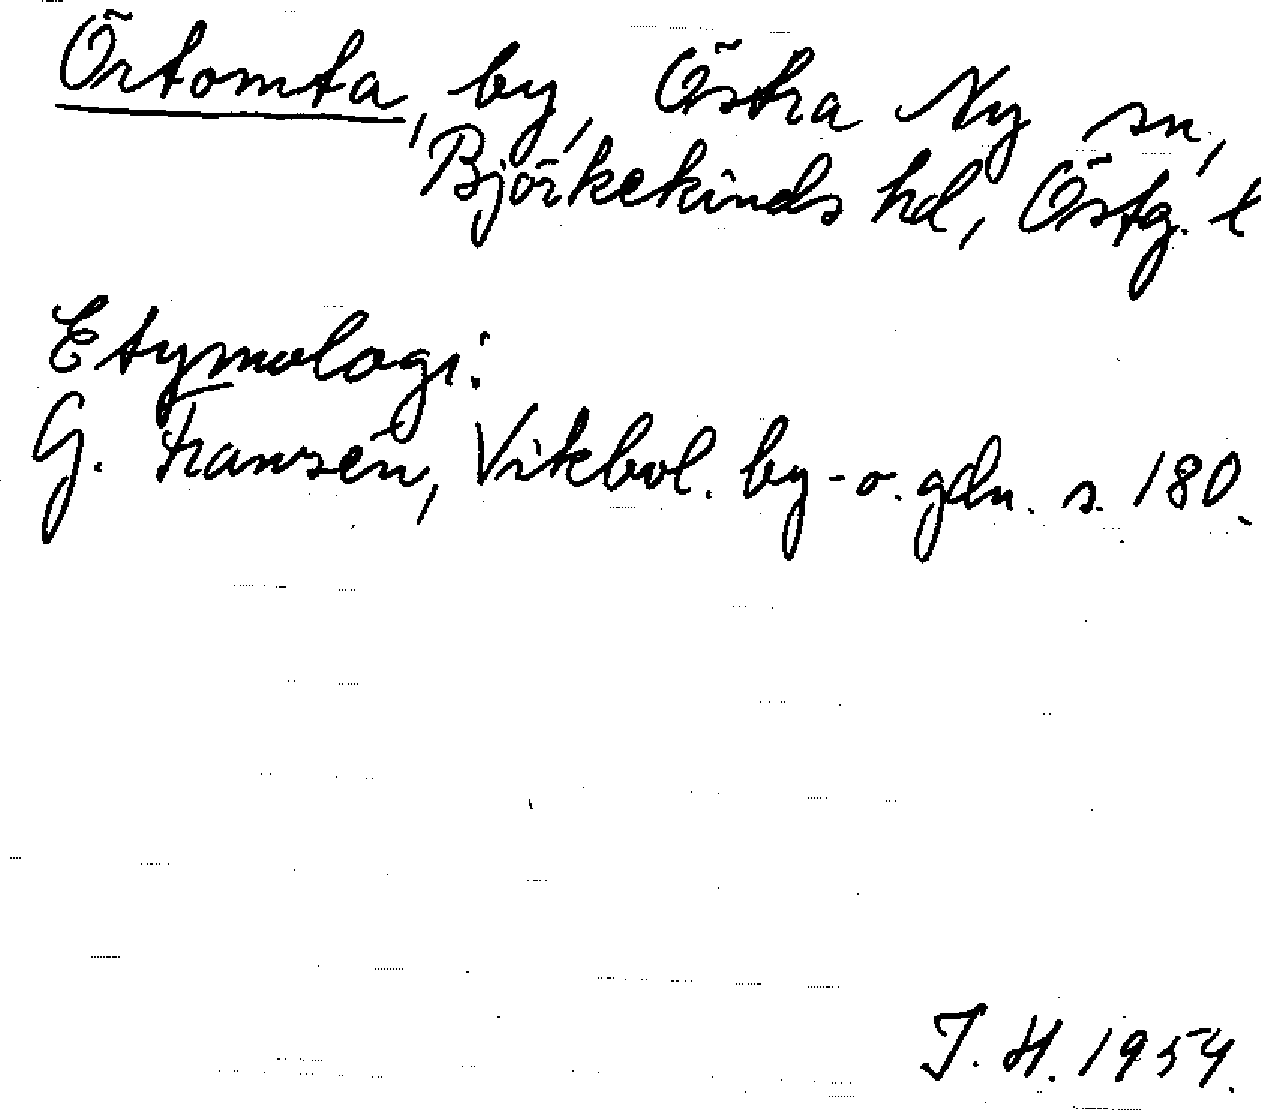 Örtomta, by, Östra Ny sn,
Björkekinds hd, Östg. l
Etymologi:
G. Franzén, Vikbol. by- o. gdn. s. 180.
J. H. 1954.